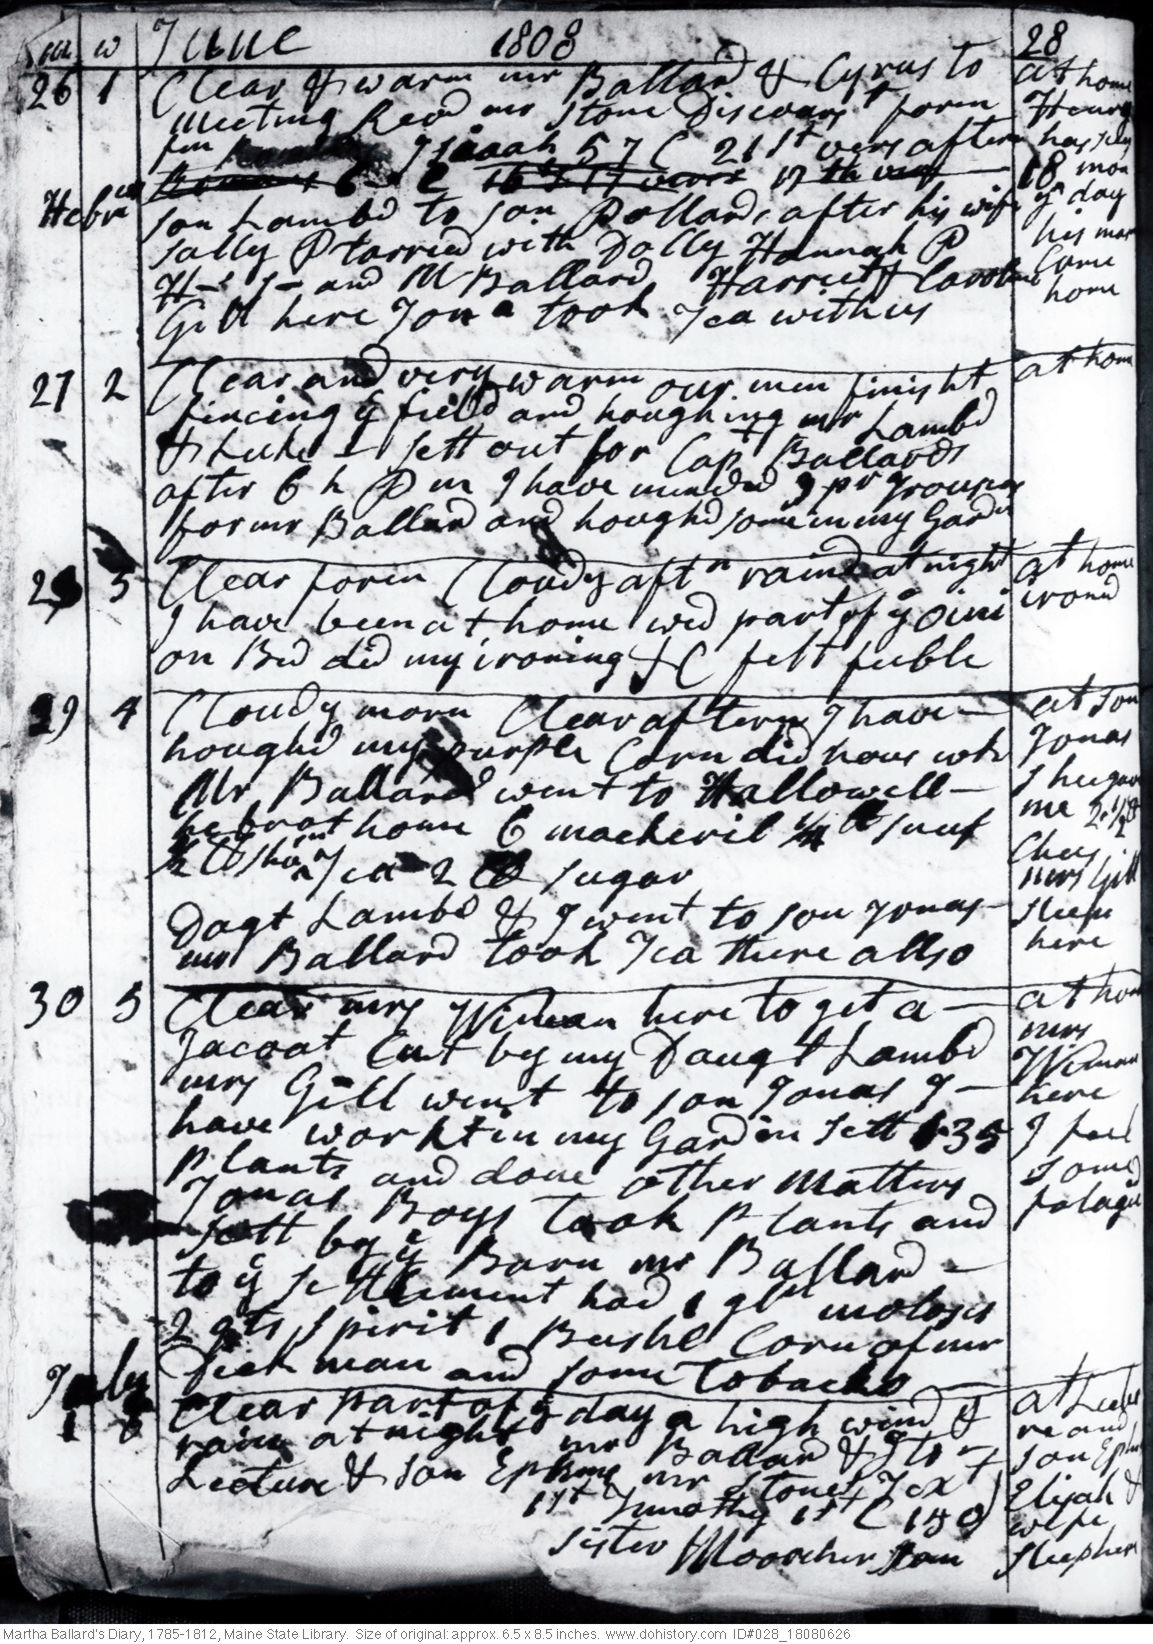 w June 1808 28
26 1 Clear & warm mr Ballard & Cyrus to
meeting Revd mr Stone Discourst foren
fm Isaaah 57 C 21st vers aftern
17th vers
Hebrus
son Lambd to son Pollards, after his wife
Sally P tarried with Dolly Hannah P
H- S- and M Ballard Harriet & Caroline
Gill here Jona took Tea with us
at home
Henry
has
18 mon
ye day
his
Came
home
27 2 Clear and very warm our men finisht
fencing ye field and houghing mr Lambd
& Luke I sett out for Capt Ballards
after 6 h P m I have mended 3 pr Trousers
for mr Ballard and houghd some in my Garden
at home
28 3 Clear foren Cloudy aftn raind at night
I have been at home wed part of ye
on Bed did my ironing & C felt feeble
at home
irond
29 4 Cloudy morn Clear aftern I have
houghd my purple Corn did hous wk
Mr Ballard went to Hallowell
he brot home 6 mackeril 1/4 lb snuf
1/2 lb Tea 2 lb sugar
Dagt Lambd & I went to son Jonas
mr Ballard took Tea there allso
at son
Jonas
shee gave
me 2 1/2 lb
Chees
mrs Gill
sleeps
here
30 5 Clear mrs Wiman here to get a
Jacoat Cut by my Daugt Lambd
mrs Gill went to son Jonas I
have workt in my Gardin sett 135
plants and done other matters
Jonas Boys took plants and
sett by ye Barn mr Ballard
to ye settlement had 1 gln moloses
2 qts spirit 1 Bushl Corn of mr
Dickman and some Tobacko
at home
mrs
Wiman
here
I feel
some
fatagu
July
1 6 Clear part of ye day a high wind &
rain at night mr Ballard & I to
Lecture & son Ephms mr Stones Text
1st Timothy 1st C 15
sister Moorcher
at Lectu
re and
son Eph
Elijah &
wife
sleep here
Martha Ballard's Diary, 1785-1812, Maine State Library. Size of original: approx. 6.5 x 8.5 inches. www.dohistory.com ID#028_18080626